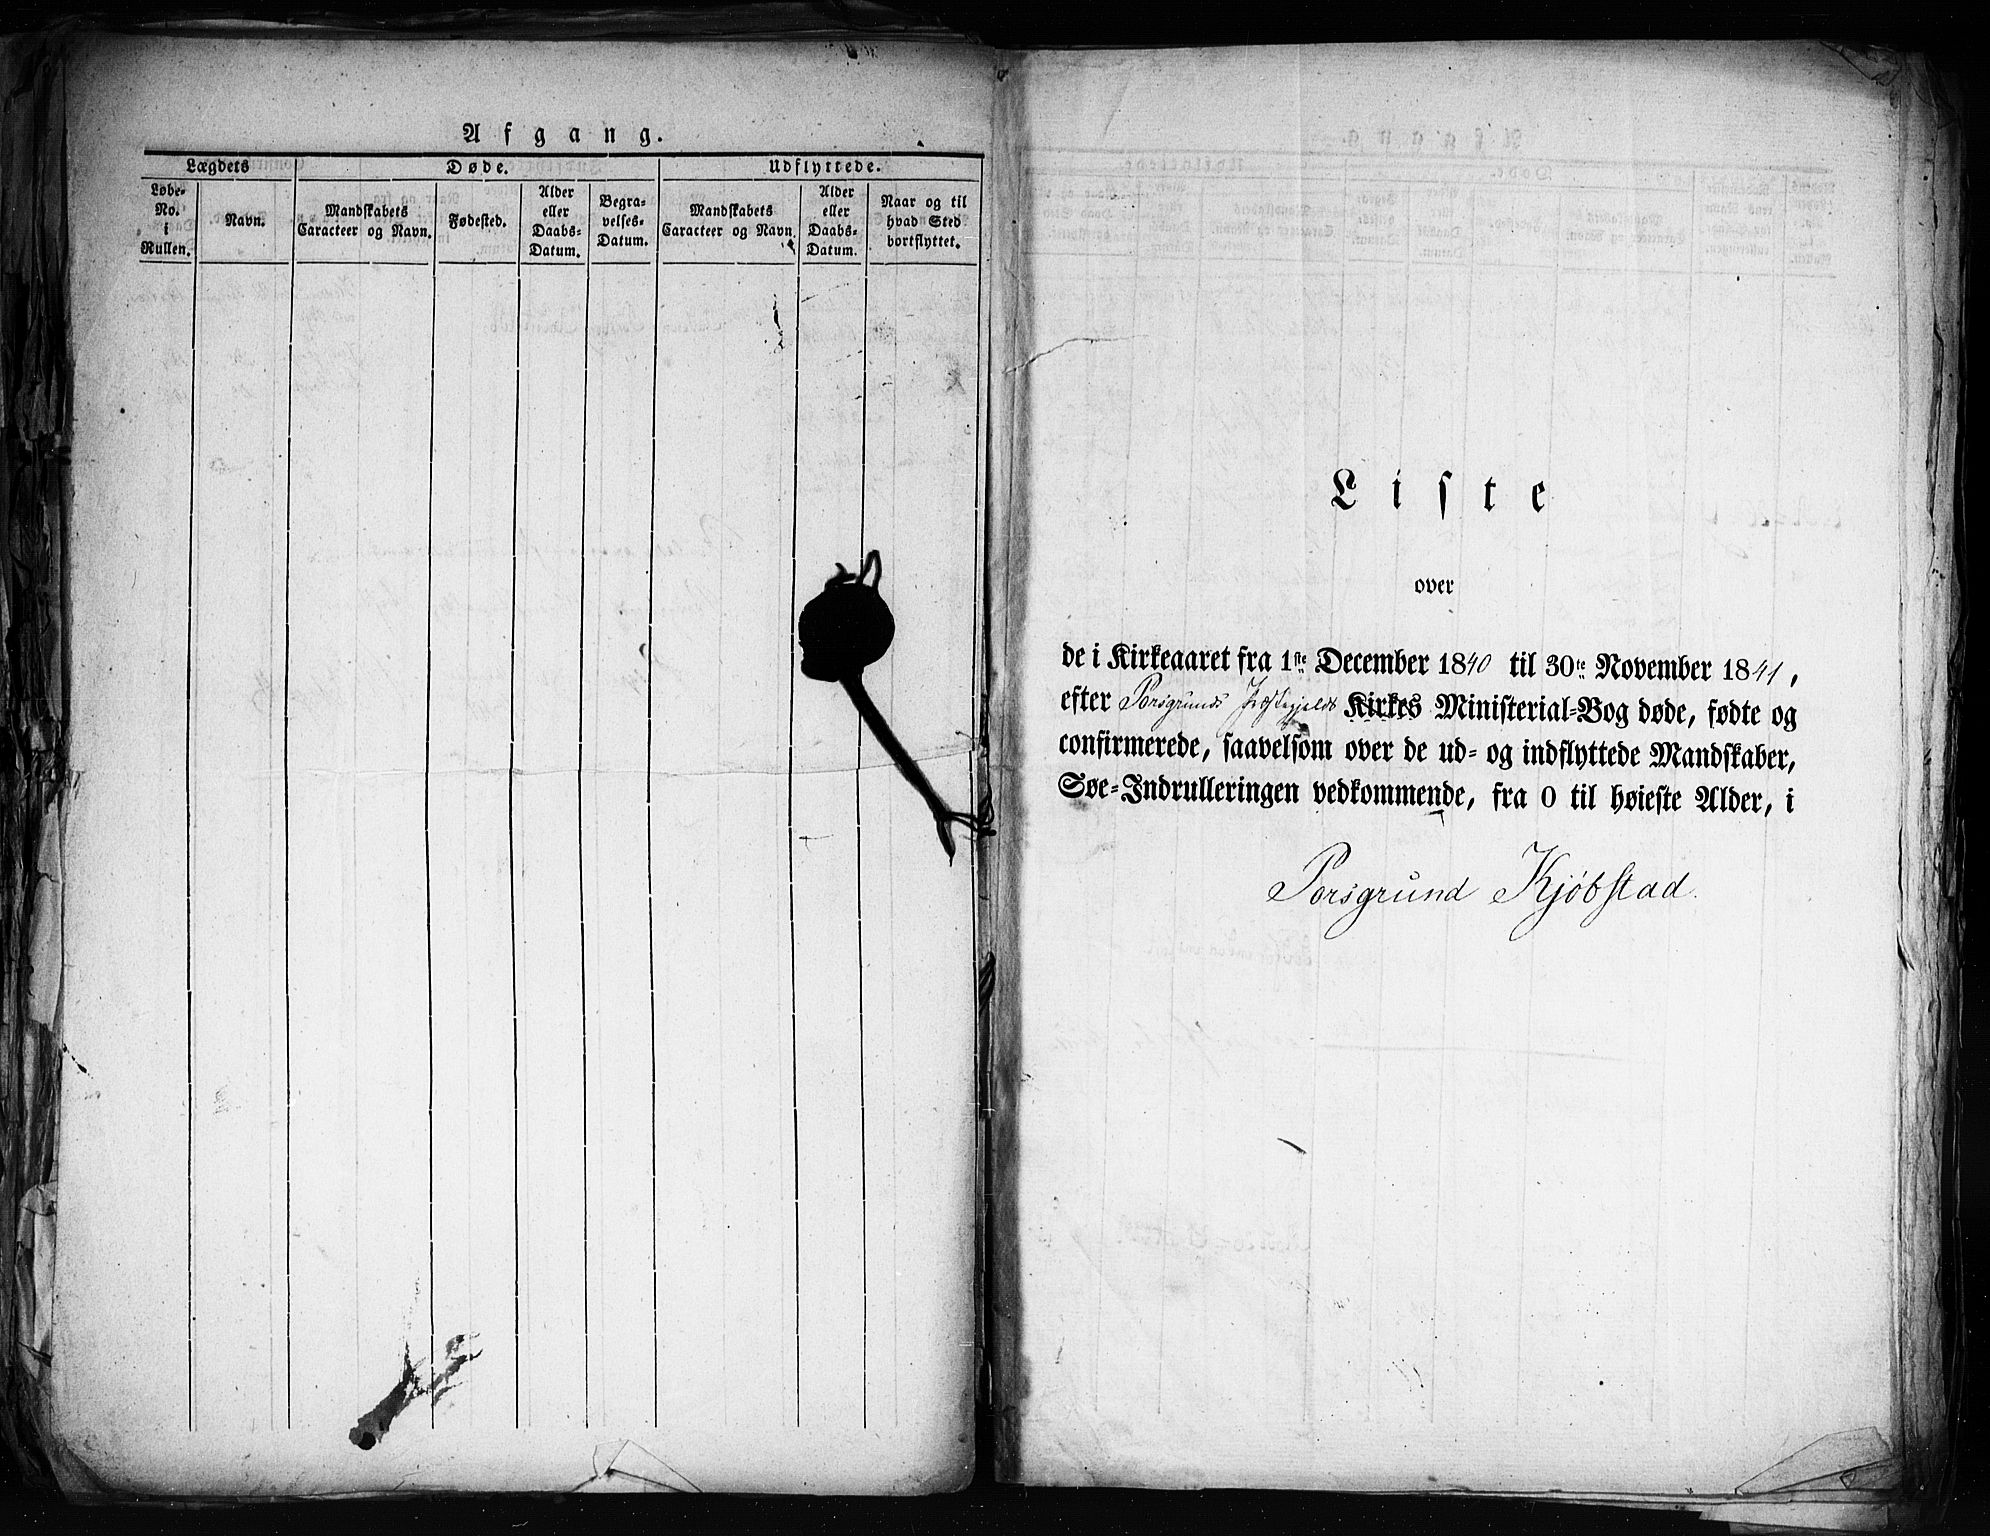 Afgang.
Lægdets Døde. Udflyttede.
Løbe-
No.
i
Rullen.
Navn.
Mandskabets
Caracteer og Navn.
Fødested.
Alder
eller
Daabs-
Datum.
Begra-
velses-
Datum.
Mandskabets
Caracteer og Navn.
Alder
eller
Daabs-
Datum.
Naar og til
hvad Sted
bortflyttet.
Liste
over
de i Kirkeaaret fra 1ste December 1840 til 30te November 1841,
efter Porsgrunds Præstegjelds Kirkes Ministerial-Bog døde, fødte og
confirmerede, saavelsom over de ud- og indflyttede Mandskaber,
Søe-Indrulleringen vedkommende, fra 0 til høieste Alder, i
Porsgrund Kjøbstad.